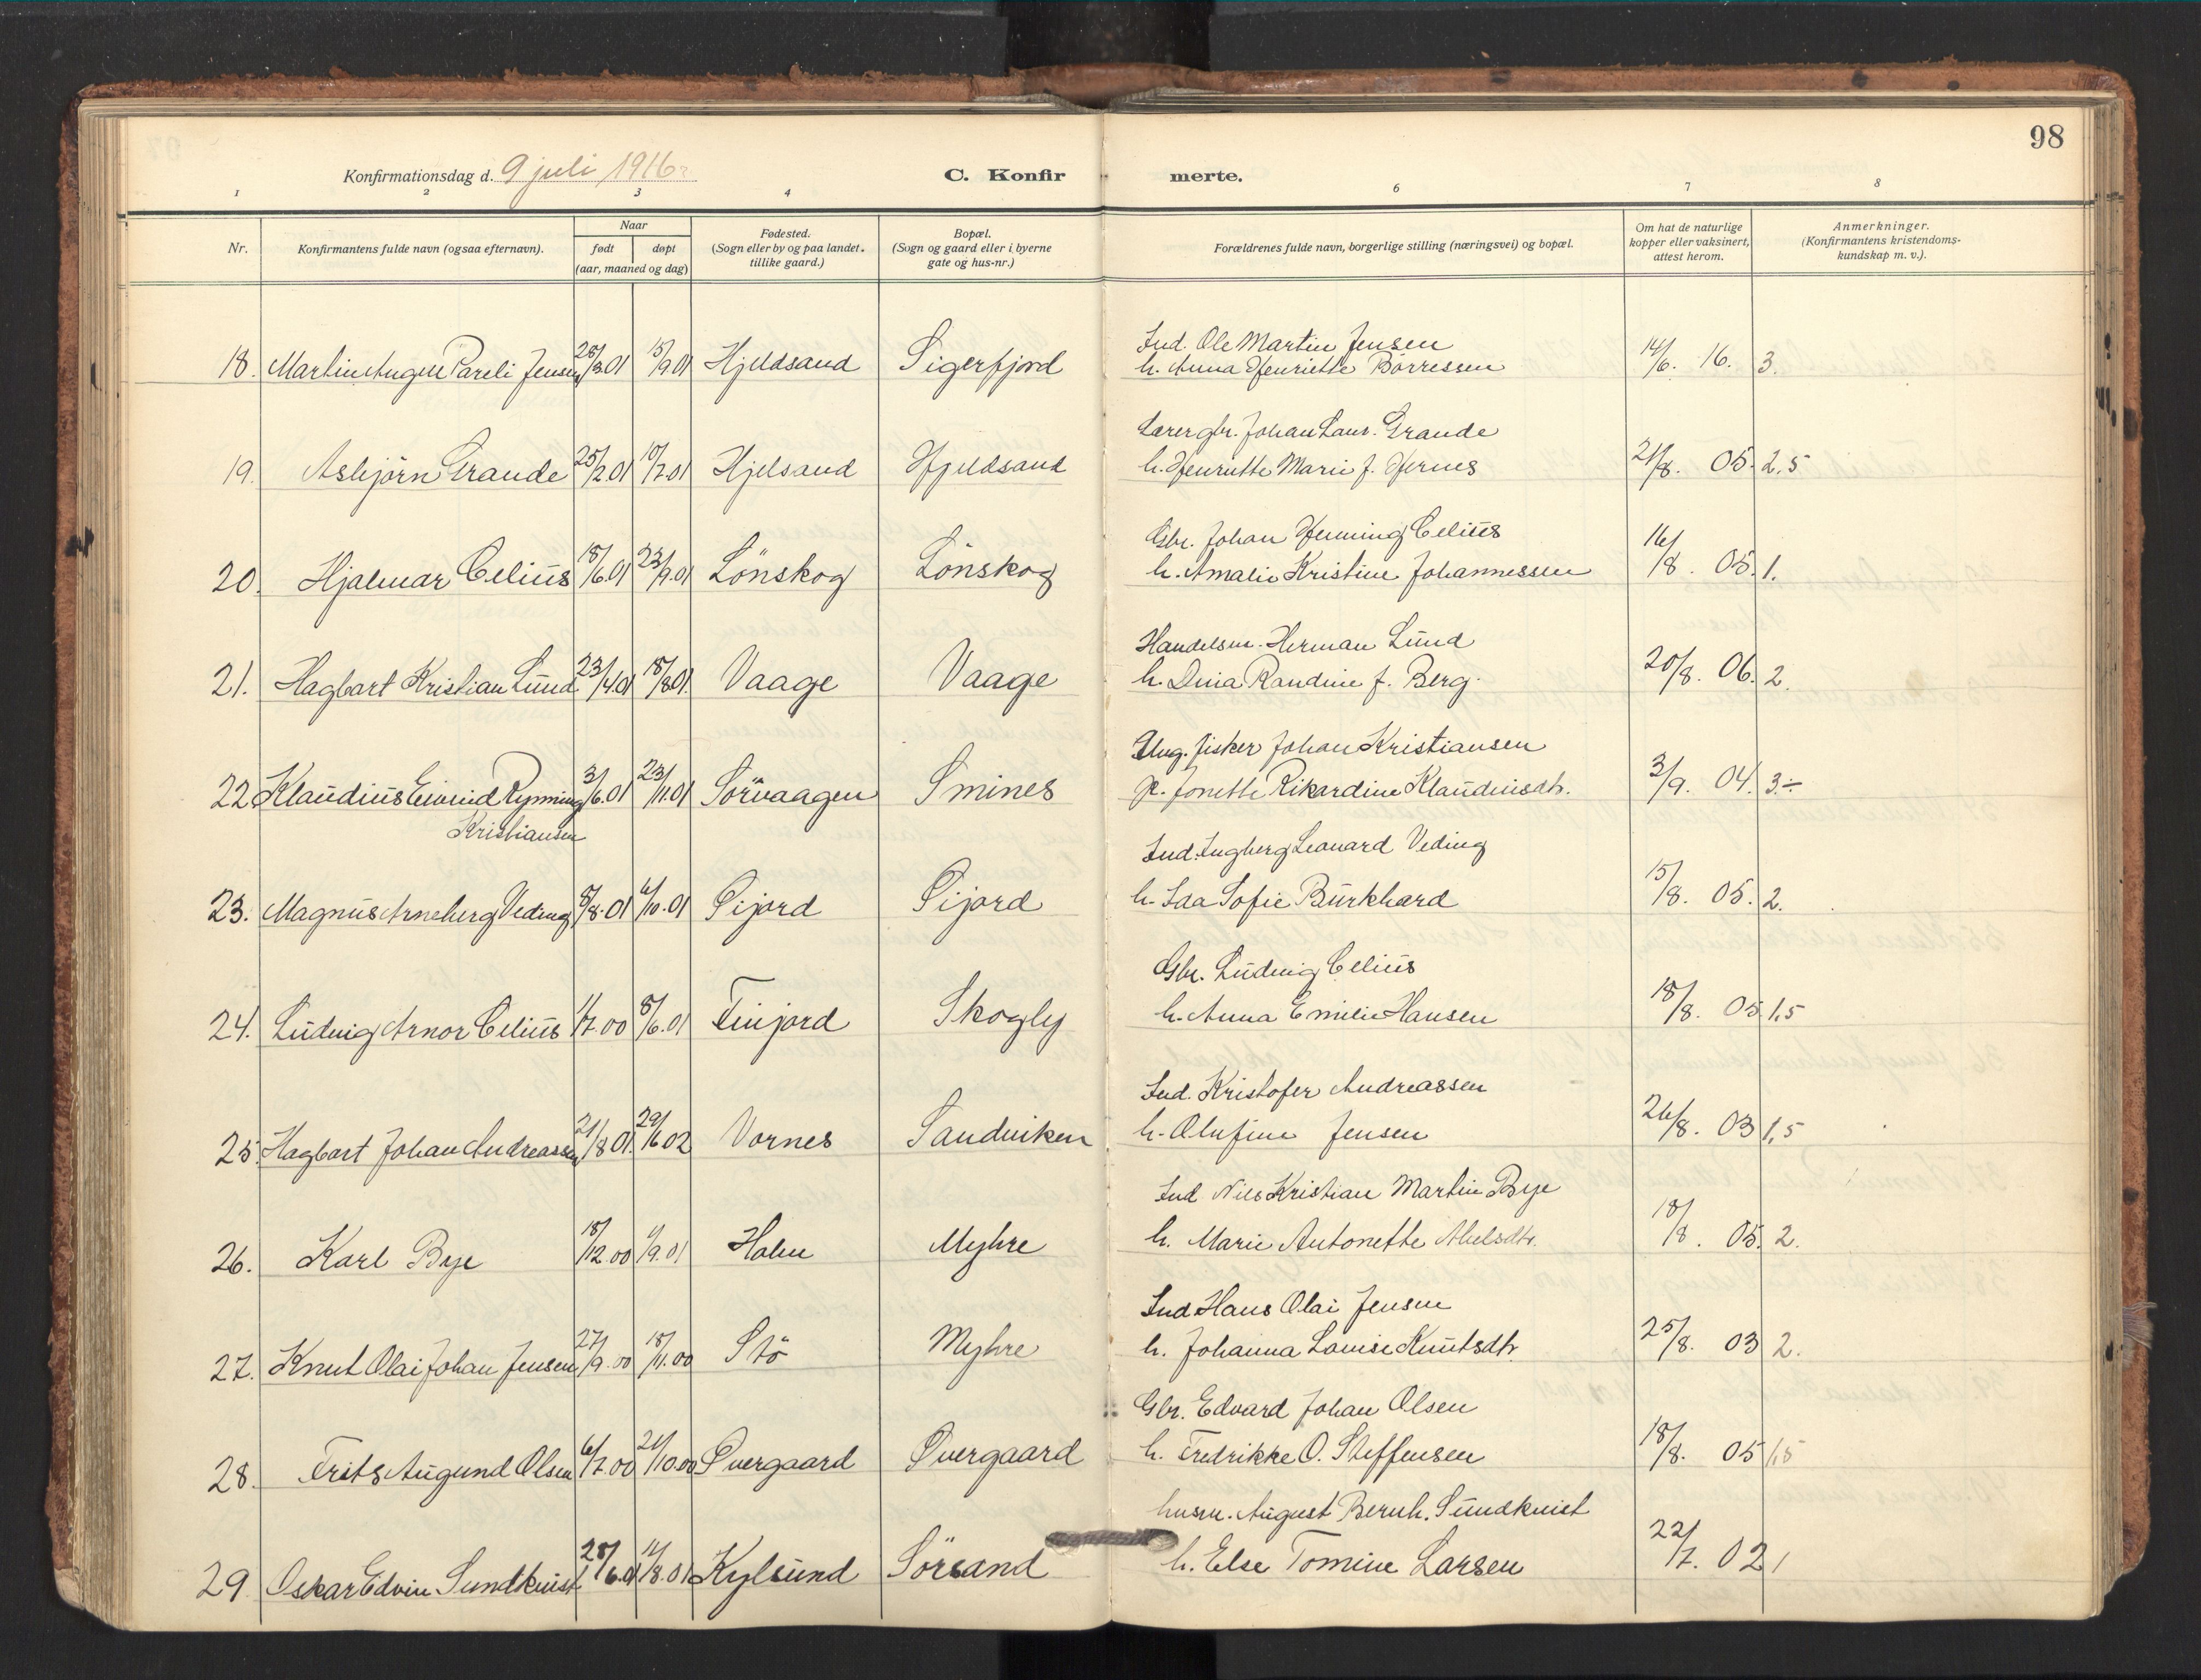 98
Konfirmationsdag d. 9 juli 1916
C. Konfirmerte.
1 2 3 4 6 7 8
Nr. Konfirmantens fulde navn (ogsaa efternavn). Naar født døpt (aar, maaned og dag) Fødested. (Sogn eller by og paa landet tillike gaard.) Bopæl. (Sogn og gaard eller i byerne gate og hus-nr.) Forældrenes fulde navn, borgerlige stilling (næringsvei) og bopæl. Om hat de naturlige kopper eller vaksinert, attest herom. Anmerkninger. (Konfirmantens kristendomskundskap m. v.).
Ind. Ole Martin Jensen
18. Martin Pareli Jensen 01 15/9 01 Hjeldsand Sigerfjord h. Anna Henriette Börressen 14/6. 16. 3.
Lærer gbr. Johan Laur. Grande
19. Asbjörn Grande 25/2.01 10/7.01 Hjelsand Hjeldsand h. Henriette Marie f. Hernes 21/8. 05. 2,5
Gbr. Johan Henning Celius
20. Hjalmar Celius 18/6.01 23/9.01 Lönskog Lönskog h. Amalie Kristine Johannessen 16/8. 05. 1.
Handelsm. Herman Lund
21. Hagbart Kristian Lund 23/4.01 18/8 01. Vaage Vaage h. Dina Randine f. Berg. 20/8. 06. 2.
Ung. fisker Johan Kristiansen
22 Klaudius Eivind Rynning 3/6.01 23/11.01 Sörvaagen Smines p. Jonette Rikardine Klaudiusdtr. 3/9. 04. 3.÷
Kristiansen
Ind. Ingberg Leonard Veding
23. Magnus Arneberg Veding 8/8.01 6/10.01 Öijord Öijord h. Ida Sofie Burkhard 15/8. 05. 2.
Gbr. Ludvig Celius
24. Ludvig Arnor Celius 11/7.00 8/6.01 Finjord Skogly h. Anna Emilie Hansen 18/8. 05 1,5
Ind. Kristofer Andreassen
25. Hagbart Johan Andreassen 21/8 01. 29/6 02 Vornes Sandviken h. Olufine Jensen 26/8. 03 1,5
Ind Nils Kristian Martin Bye
26. Karl Bye 18/12 00 1/9.01 Holm Myhre h. Marie Antonette Abelsdtr. 18/8. 05. 2.
Ind Hans Olai Jensen
27. Knut Olai Johan Jensen 27/9.00 18/11.00 Stö Myhre h. Johanna Lovise Knutsdtr. 25/8. 03 2.
Gbr. Edvard Johan Olsen
28. Frits Augund Olsen 6/7.00 21/10.00 Øvergaard Øvergaard h. Fredrikke O. Steffensen 18/8. 05 1,5
husm. August Bernh. Sundkvist
29. Oskar Edvin Sundkvist 28/6.01 11/8.01 Kylsund Sörsand h. Else Tomine Larsen 22/7. 02 1